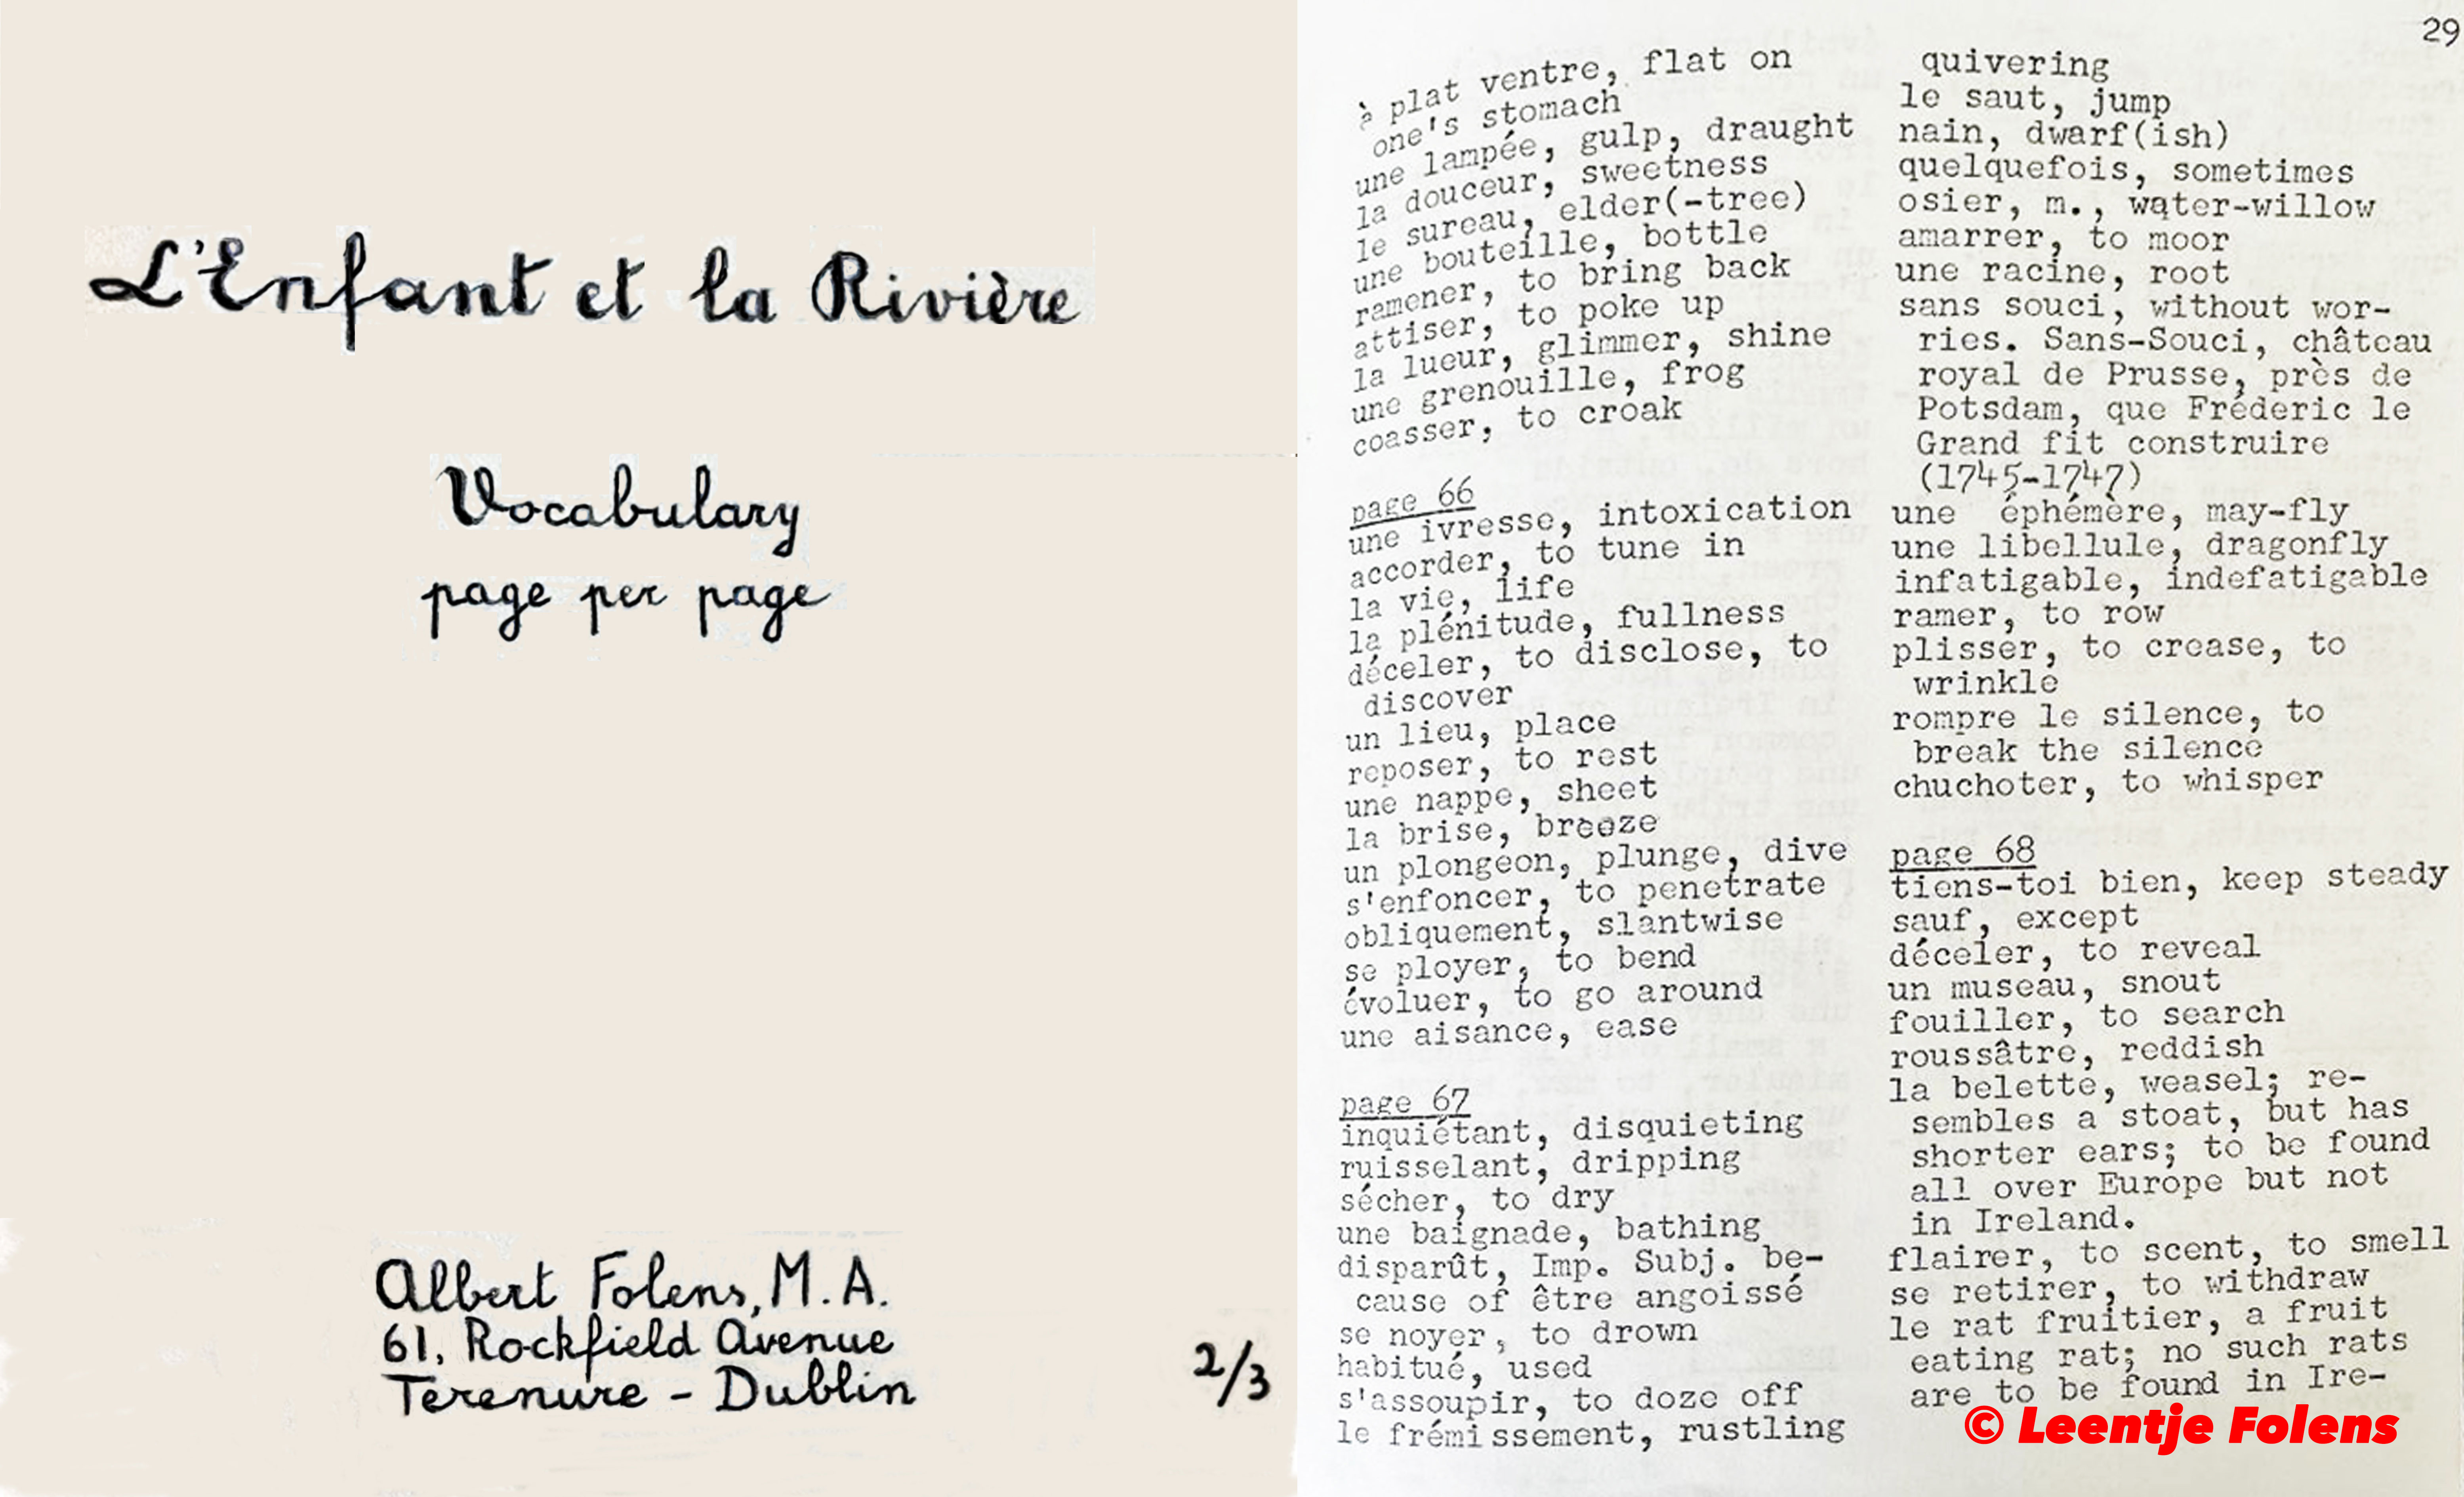 L'Enfant et la Rivière
Vocabulary
page per page
Albert Folens, M.A.
61, Rockfield Avenue
Terenure - Dublin
2/3
29
à plat ventre, flat on
one's stomach
une lampée, gulp, draught
la douceur, sweetness
le sureau, elder(-tree)
une bouteille, bottle
ramener, to bring back
attiser, to poke up
la lueur, glimmer, shine
une grenouille, frog
coasser, to croak
page 66
une ivresse, intoxication
accorder, to tune in
la vie, life
la plénitude, fullness
déceler, to disclose, to
discover
un lieu, place
reposer, to rest
une nappe, sheet
la brise, breeze
un plongeon, plunge, dive
s'enfoncer, to penetrate
obliquement, slantwise
se ployer, to bend
évoluer, to go around
une aisance, ease
page 67
inquiétant, disquieting
ruisselant, dripping
sécher, to dry
une baignade, bathing
disparût, Imp. Subj. be-
cause of être angoissé
se noyer, to drown
habitué, used
s'assoupir, to doze off
le frémissement, rustling
quivering
le saut, jump
nain, dwarf(ish)
quelquefois, sometimes
osier, m., water-willow
amarrer, to moor
une racine, root
sans souci, without wor-
ries. Sans-Souci, château
royal de Prusse, près de
Potsdam, que Fréderic le
Grand fit construire
(1745-1747)
une éphémère, may-fly
une libellule, dragonfly
infatigable, indefatigable
ramer, to row
plisser, to crease, to
wrinkle
rompre le silence, to
break the silence
chuchoter, to whisper
page 68
tiens-toi bien, keep steady
sauf, except
déceler, to reveal
un museau, snout
fouiller, to search
roussâtre, reddish
la belette, weasel; re-
sembles a stoat, but has
shorter ears; to be found
all over Europe but not
in Ireland.
flairer, to scent, to smell
se retirer, to withdraw
le rat fruitier, a fruit
eating rat; no such rats
are to be found in Ire-
© Leentje Folens